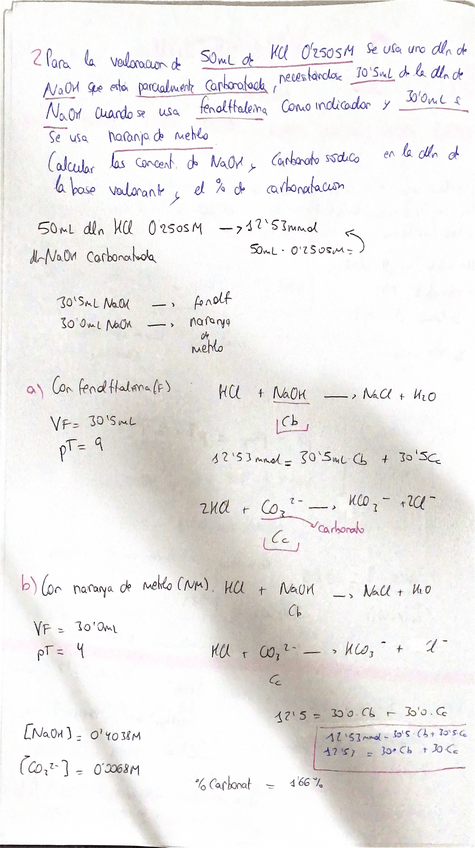 2 Para la valoracion de 50mL de HCl 0'2505M se usa una dln de
NaOH que esta parcialmente Carbonatada, necesitándose 30'5mL de la dln de
NaOH cuando se usa fenolftaleina como indicador y 30'0mL s
se usa naranja de metilo
Calcular las concent. de NaOH y Carbonato sodico en la dln de
la base valorante y el % de carbonatacion
50mL dln HCl 0'2505M → 12'53mmol
50mL · 0'2505M =
dln NaOH Carbonatada
30'5mL NaOH → fenolf
30'0mL NaOH → naranja
de
metilo
a) Con fenolftaleina (F)
HCl + NaOH → NaCl + H2O
Cb
VF = 30'5mL
pT = 9
12'53mmol = 30'5mL Cb + 30'5Cc
2HCl + CO3²⁻ → HCO3⁻ + 2Cl⁻
Carbonato
Cc
b) Con naranja de metilo (NM). HCl + NaOH → NaCl + H2O
Cb
VF = 30'0mL
pT = 4
HCl + CO3²⁻ → HCO3⁻ + Cl⁻
Cc
12'5 = 30'0·Cb + 30'0·Cc
12'53mmol = 30'5·Cb + 30'5Cc
12'53 = 30·Cb + 30Cc
[NaOH] = 0'4038M
[CO3²⁻] = 0'0068M
% Carbonat = 1'66%